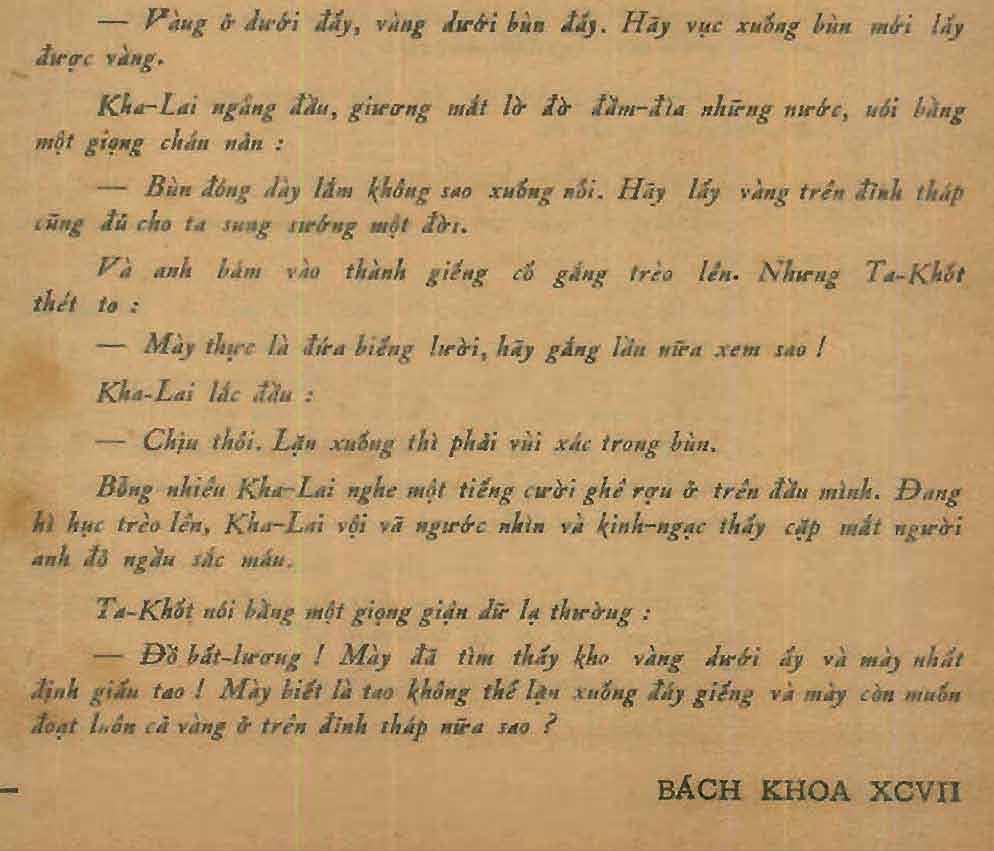 — Vàng ở dưới đấy, vàng dưới bùn đấy. Hãy vục xuống bùn mới lấy
được vàng.
Kha-Lai ngẩng đầu, giương mắt lờ đờ đầm-đìa những nước, nói bằng
một giọng chán nản :
— Bùn đóng dày lắm không sao xuống nổi. Hãy lấy vàng trên đỉnh tháp
cũng đủ cho ta sung sướng một đời.
Và anh bám vào thành giếng cố gắng trèo lên. Nhưng Ta-Khốt
thét to :
— Mày thực là đứa biếng lười, hãy gắng lần nữa xem sao !
Kha-Lai lắc đầu :
— Chịu thôi. Lặn xuống thì phải vùi xác trong bùn.
Bỗng nhiên Kha-Lai nghe một tiếng cười ghê rợn ở trên đầu mình. Đang
hì hục trèo lên, Kha-Lai vội vã ngước nhìn và kinh-ngạc thấy cặp mắt người
anh đỏ ngầu sắc máu.
Ta-Khốt nói bằng một giọng giận dữ lạ thường :
— Đồ bất-lương ! Mày đã tìm thấy kho vàng dưới ấy và mày nhất
định giấu tao ! Mày biết là tao không thể lặn xuống đáy giếng và mày còn muốn
đoạt luôn cả vàng ở trên đỉnh tháp nữa sao ?
BÁCH KHOA XCVII